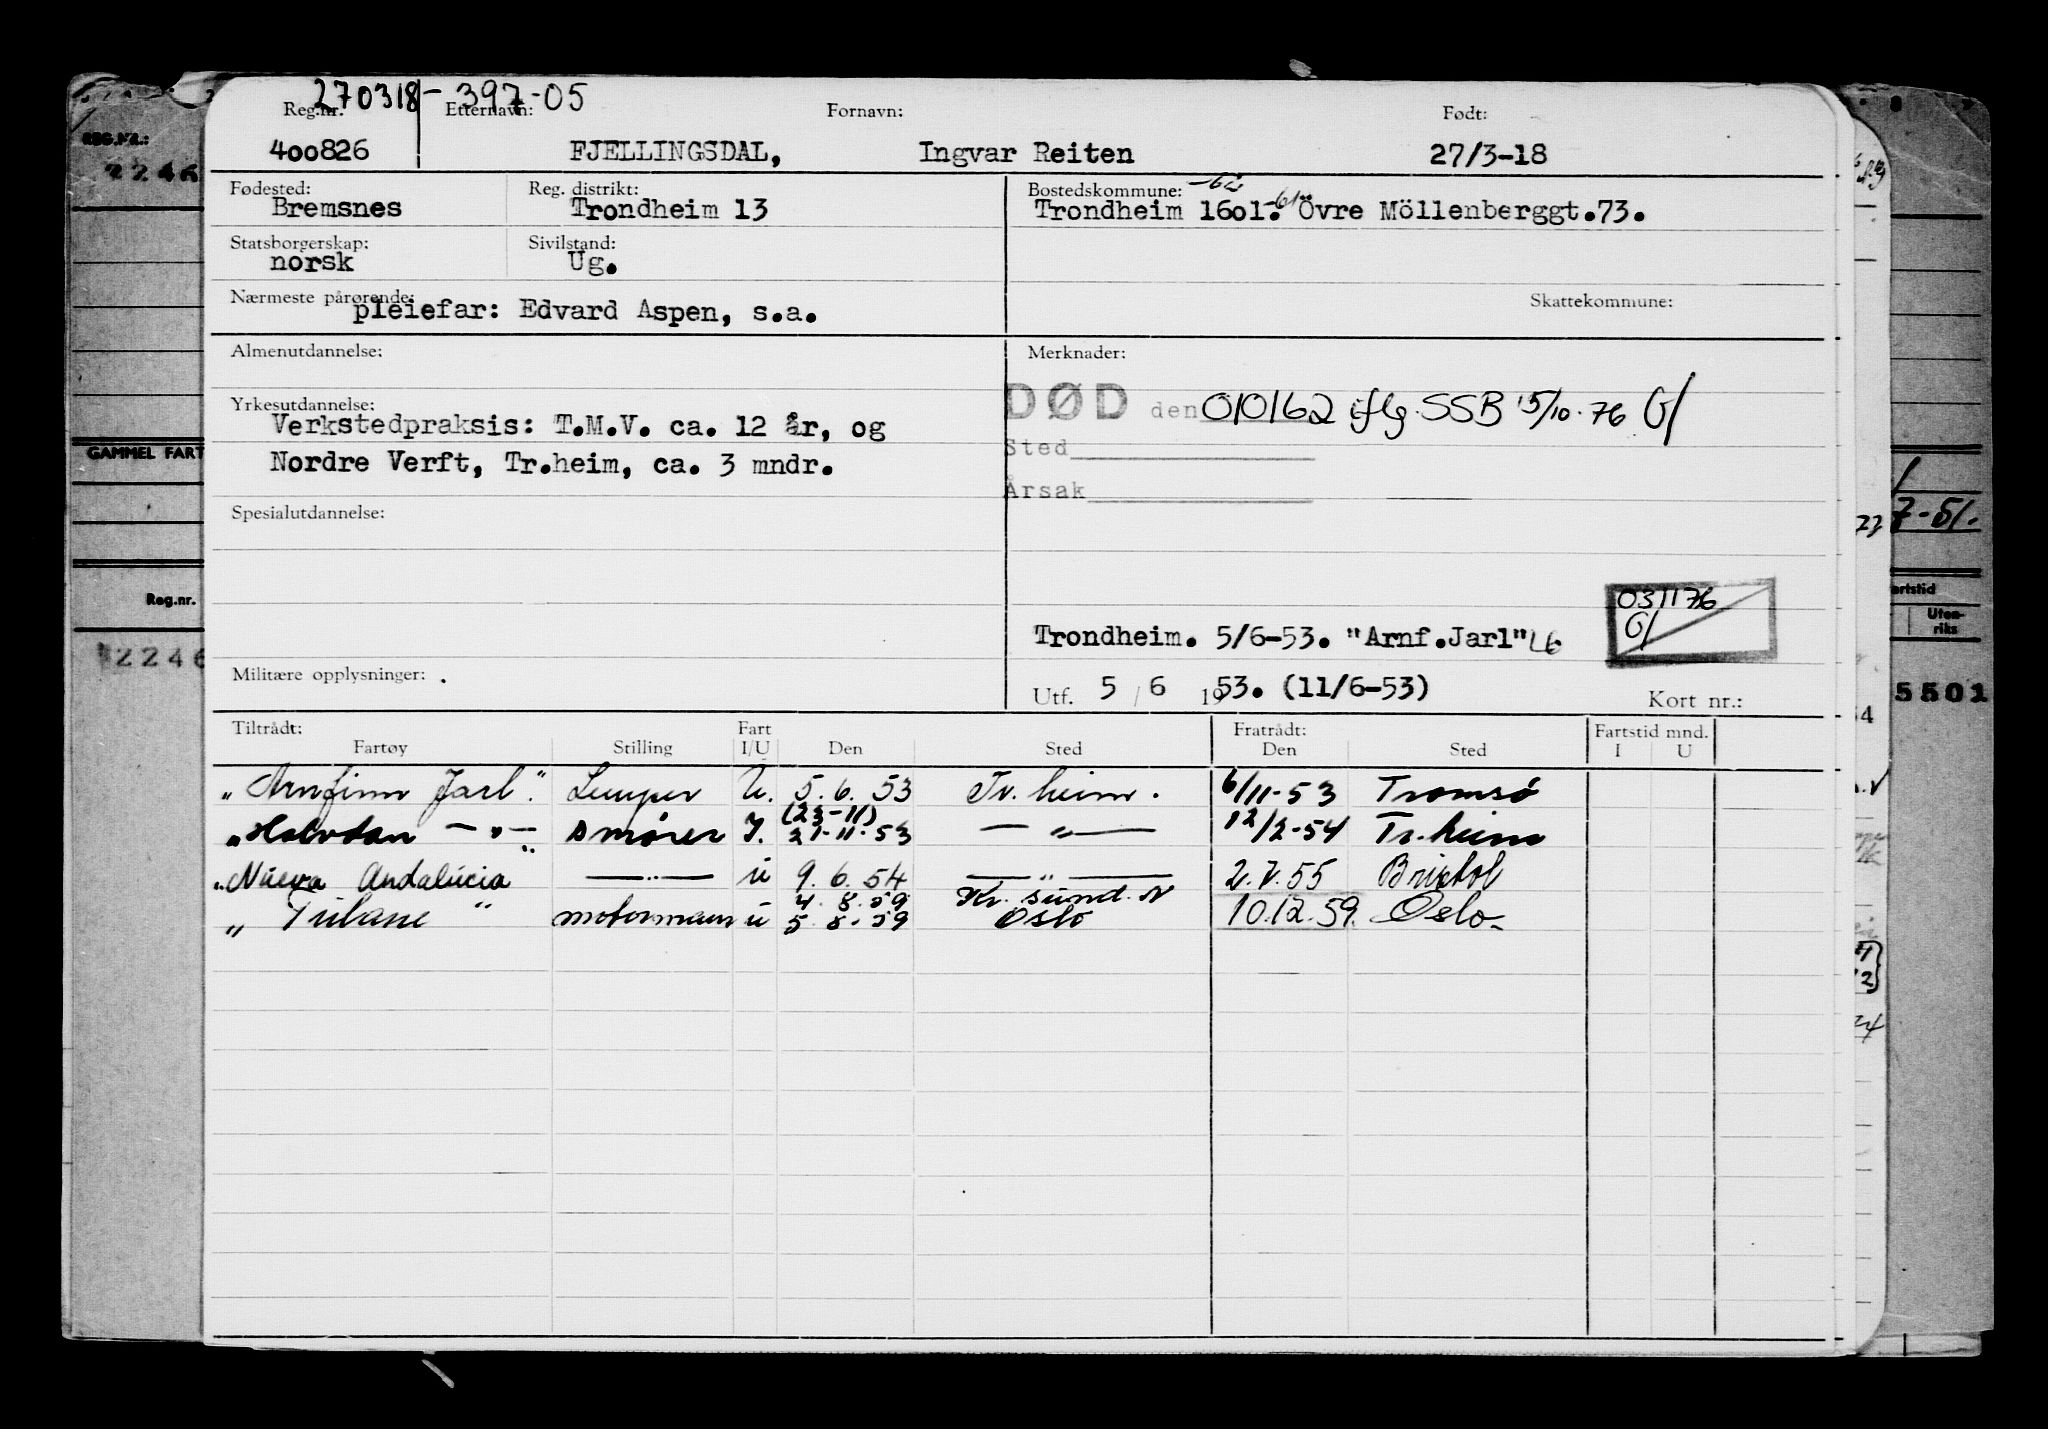 270318-397-05
Reg.nr. Etternavn: Fornavn: Født:
400826 FJELLINGSDAL, Ingvar Reiten 27/3-18
Fødested: Reg. distrikt: Bostedskommune:
Bremsnes Trondheim 13 Trondheim 1601. Övre Möllenberggt.73.
Statsborgerskap: Sivilstand:
norsk Ug.
Nærmeste pårørende: Skattekommune:
pleiefar: Edvard Aspen, s.a.
Almenutdannelse: Merknader:
DØD den 010162 iflg. SSB 15/10-76 G/
Yrkesutdannelse:
Verkstedpraksis: T.M.V. ca. 12 år, og
Sted
Nordre Verft, Tr.heim, ca. 3 mndr.
Årsak
Spesialutdannelse:
031176
G/
Trondheim. 5/6-53. "Arnf.Jarl" LG
Militære opplysninger: .
Utf. 5 / 6 1953. (11/6-53) Kort nr.:
Tiltrådt: Fart Fratrådt: Fartstid mnd.
Fartøy Stilling I/U Den Sted Den Sted I U
"Arnfinn Jarl". Lemper U. 5.6.53 Tr.heim. 6/11-53 Tromsø
(23-11)
"Halvdan —"— " Smører I. 21-11-53 —"— 12/2-54 Tr.heim
"Nueva Andalucia —"— U 9.6.54 —"— 2.7.55 Bristol
4.8.59 Kr.sund.N
"Tulane" motormann U 5.8.59 Oslo 10.12.59. Oslo
REG.NR.:
2246
GAMMEL FART
Reg.nr.
2246
7-51.
artstid
Uten-
riks
5501